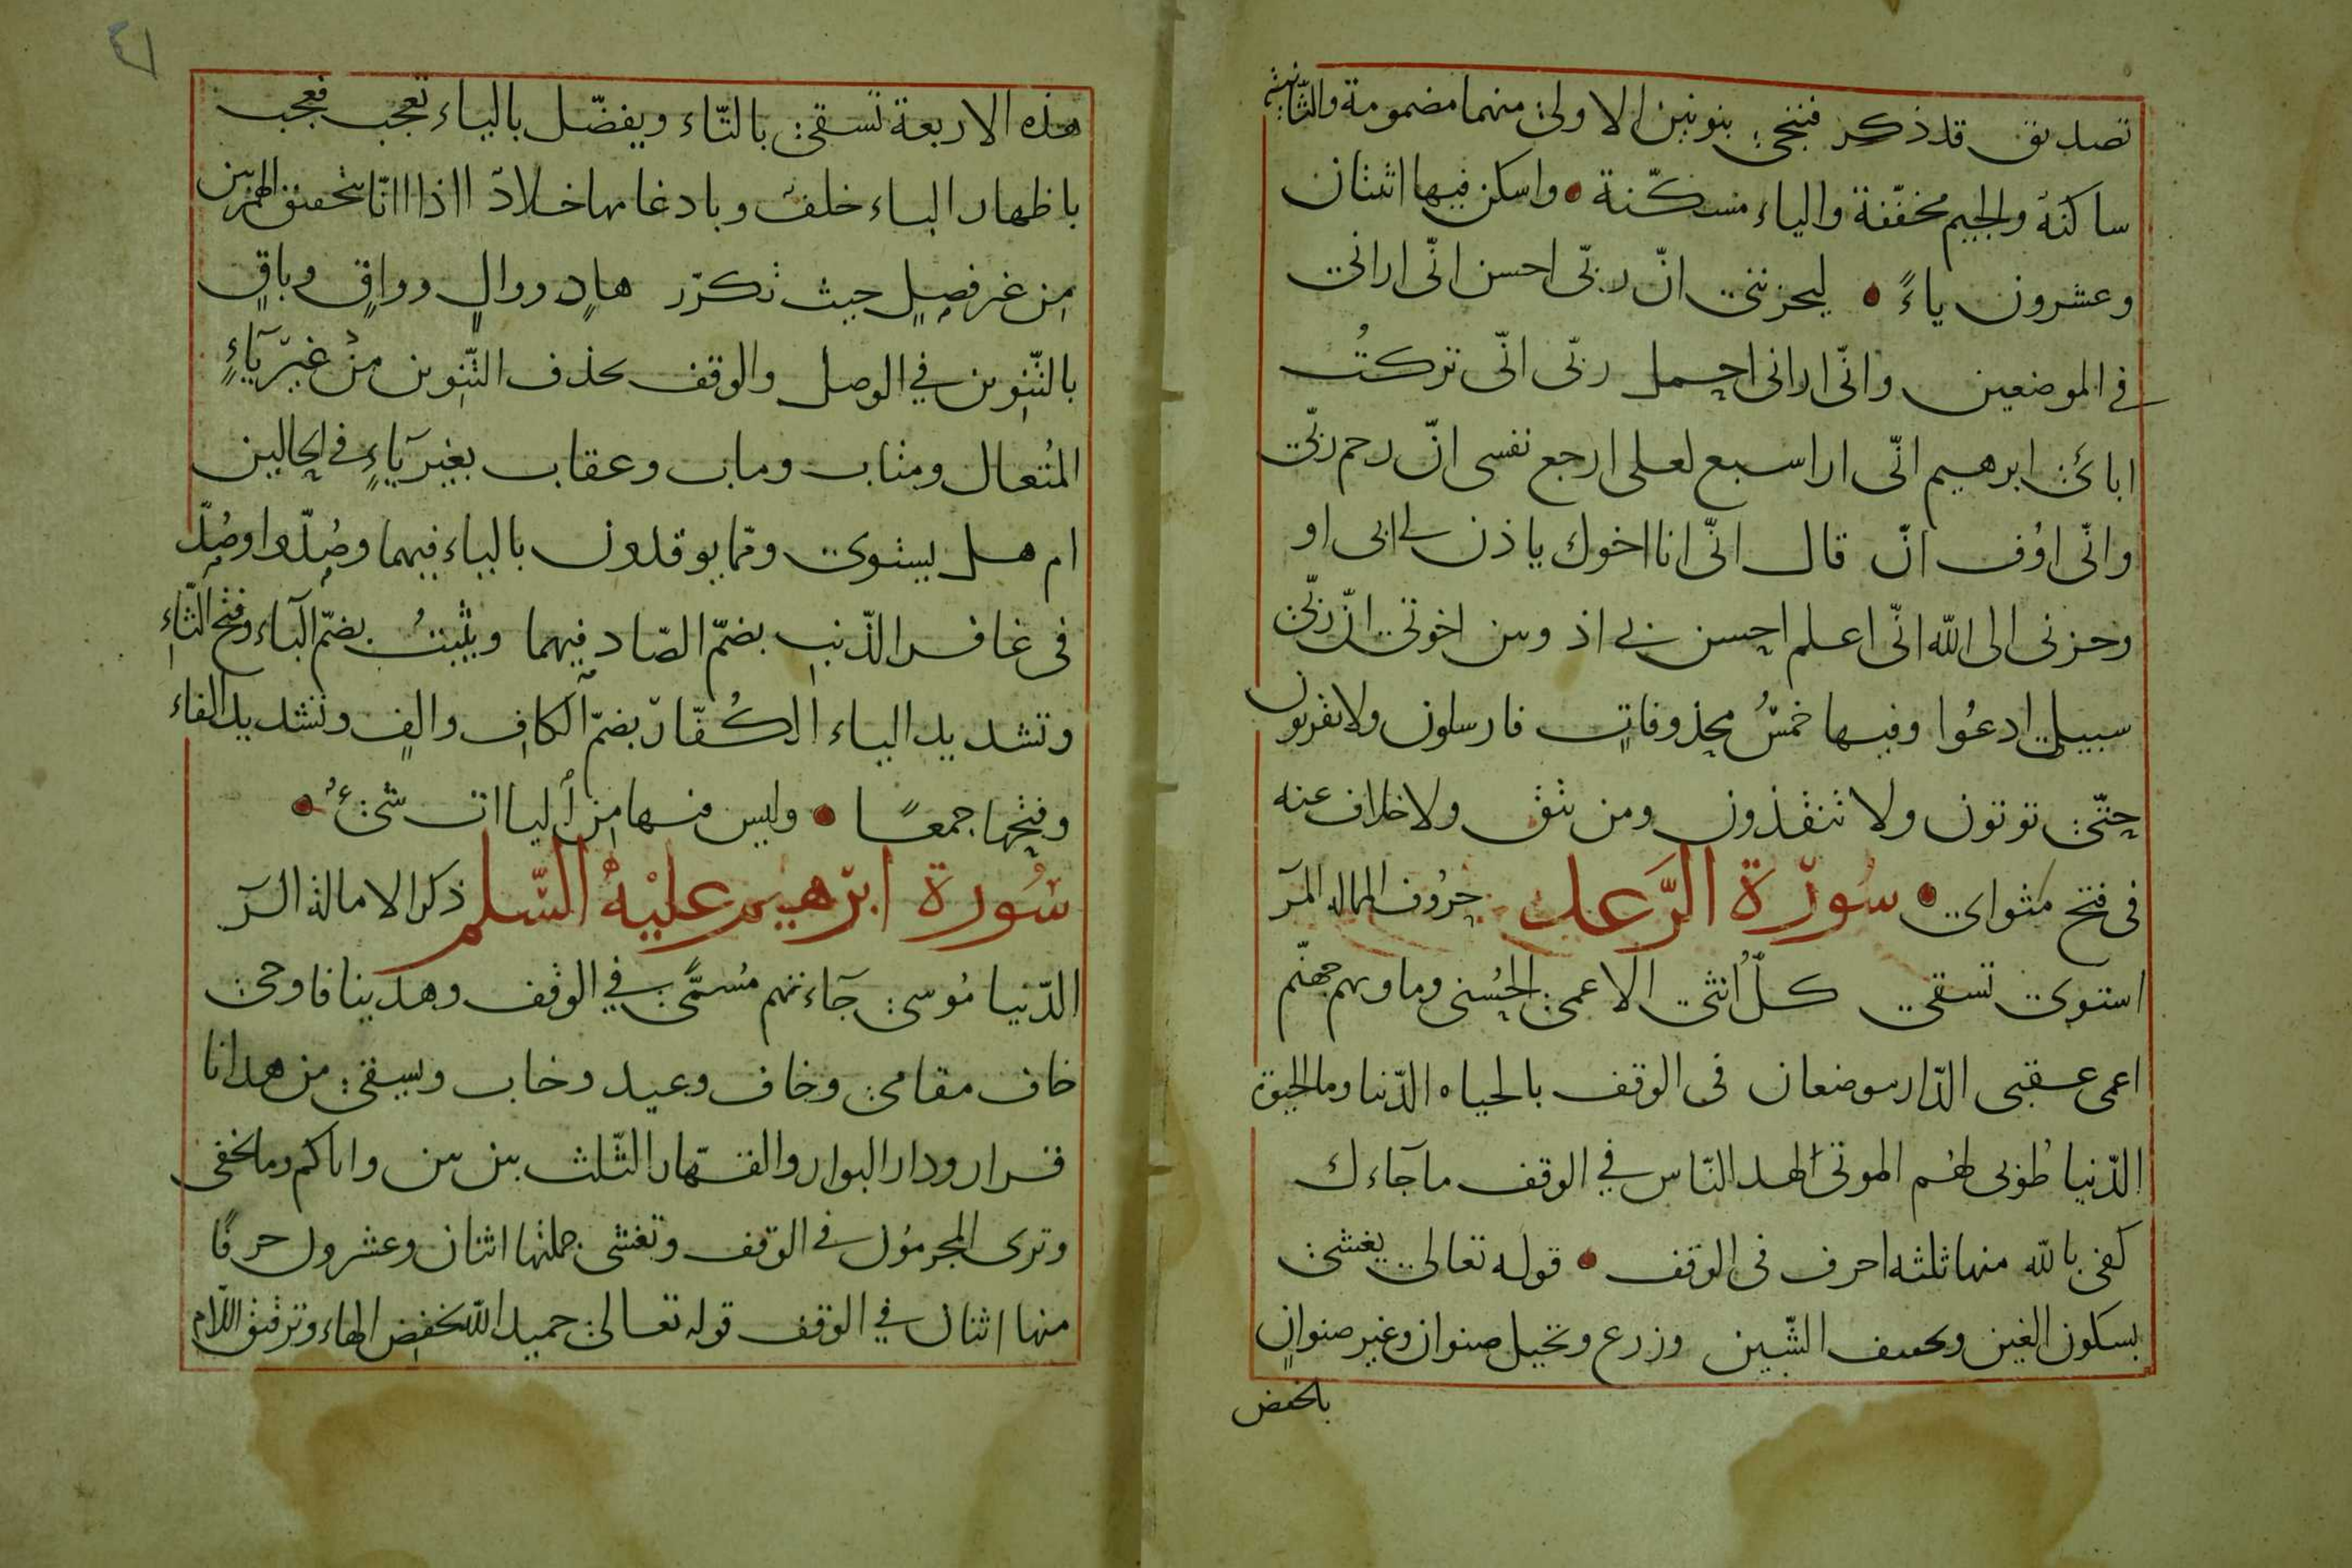 تصديق قد ذكر فننجى بنونين الاولى منهما مضمومة والثانية
ساكنة والجيم مخففة والياء مسكّنة واسكن فيها اثنتان
وعشرون ياءً ليحزننى انّ ربّى احسن انّى ارانى
فى الموضعين وانّى ارانى احمل ربّى انّى تركتُ
ابائى ابرهيم انّى ارا سبع لعلى ارجع نفسى انّ رحم ربّى
وانّى اوُف انّ قال انّى انا اخوك ياذن لى ابى او
وحزنى الى الله انّى اعلم احسن بى اذ وبين اخوتى انّ ربّى
سبيلى ادعُوا وفيها خمسُ محذوفاتٍ فارسلون ولا تقربون
حتّى توتون ولا تنفذون ومن يتق ولا خلاف عنه
فى فتح مثواى سورة الرّعد حرُوف الماله المر
استوى تسقى كلّ انثى الاعمى الحُسنى وماويهم جهنّم
اعمى عقبى الدّار موضعان فى الوقف بالحياه الدّنيا وما الحيوة
الدّنيا طُوبى لهُم الموتى لهد النّاس فى الوقف ما جآءك
كفى بالله منها ثلثه احرف فى الوقف قوله تعالى يغشى
بسكون الغين وتخفيف الشّين وزرع ونخيل صنوان وغير صنوانٍ
بالخفض
٤١
هذه الاربعة تسقى بالتّاء ويفضّل بالياء تعجب فعجب
باظهار الباء خلف وبادغامها خلادّ ااذا اانّا بتحقيق الهمزتين
مِن غير فصلٍ حيث تكرّر هادٍ ووالٍ وواقٍ وباقٍ
بالتّنوين فى الوصل والوقف بحذف التّنوين منْ غيرَ يَآءٍ
المُتعال ومتاب وماب وعقاب بغير يَآءٍ فى الحالين
ام هل يستوى وممّا يوقدون بالياء فيهما وصُدّوا وصُدّ
فى غافر الذّنب بضمّ الصّاد فيهما ويثبتُ بضمّ اليآء وفتح الثّاءِ
وتشديد الباء الكُفّار بضمّ الكافِ والفٍ وتشديد الفاء
وفتحها جمعًا وليس فيها مِن اليااتِ شىءُ
سُورة ابرهيم عليْهُ السّلم ذكر الامالة الر
الدّنيا مُوسى جآءتهم مُسمًّى فى الوقف وهدينا فاوحى
خاف مقامى وخاف وعيد وخاب ويسقى من هدانا
قرار ودار البوار والقهّار الثّلث بين بين واتاكم وما يخفى
وترى المجرمُون فى الوقف وتغشى جملتها اثنان وعشرون حرفًا
منها اثنان فى الوقف قوله تعالى حميد الله بخفض الهاء وترقيق اللّام